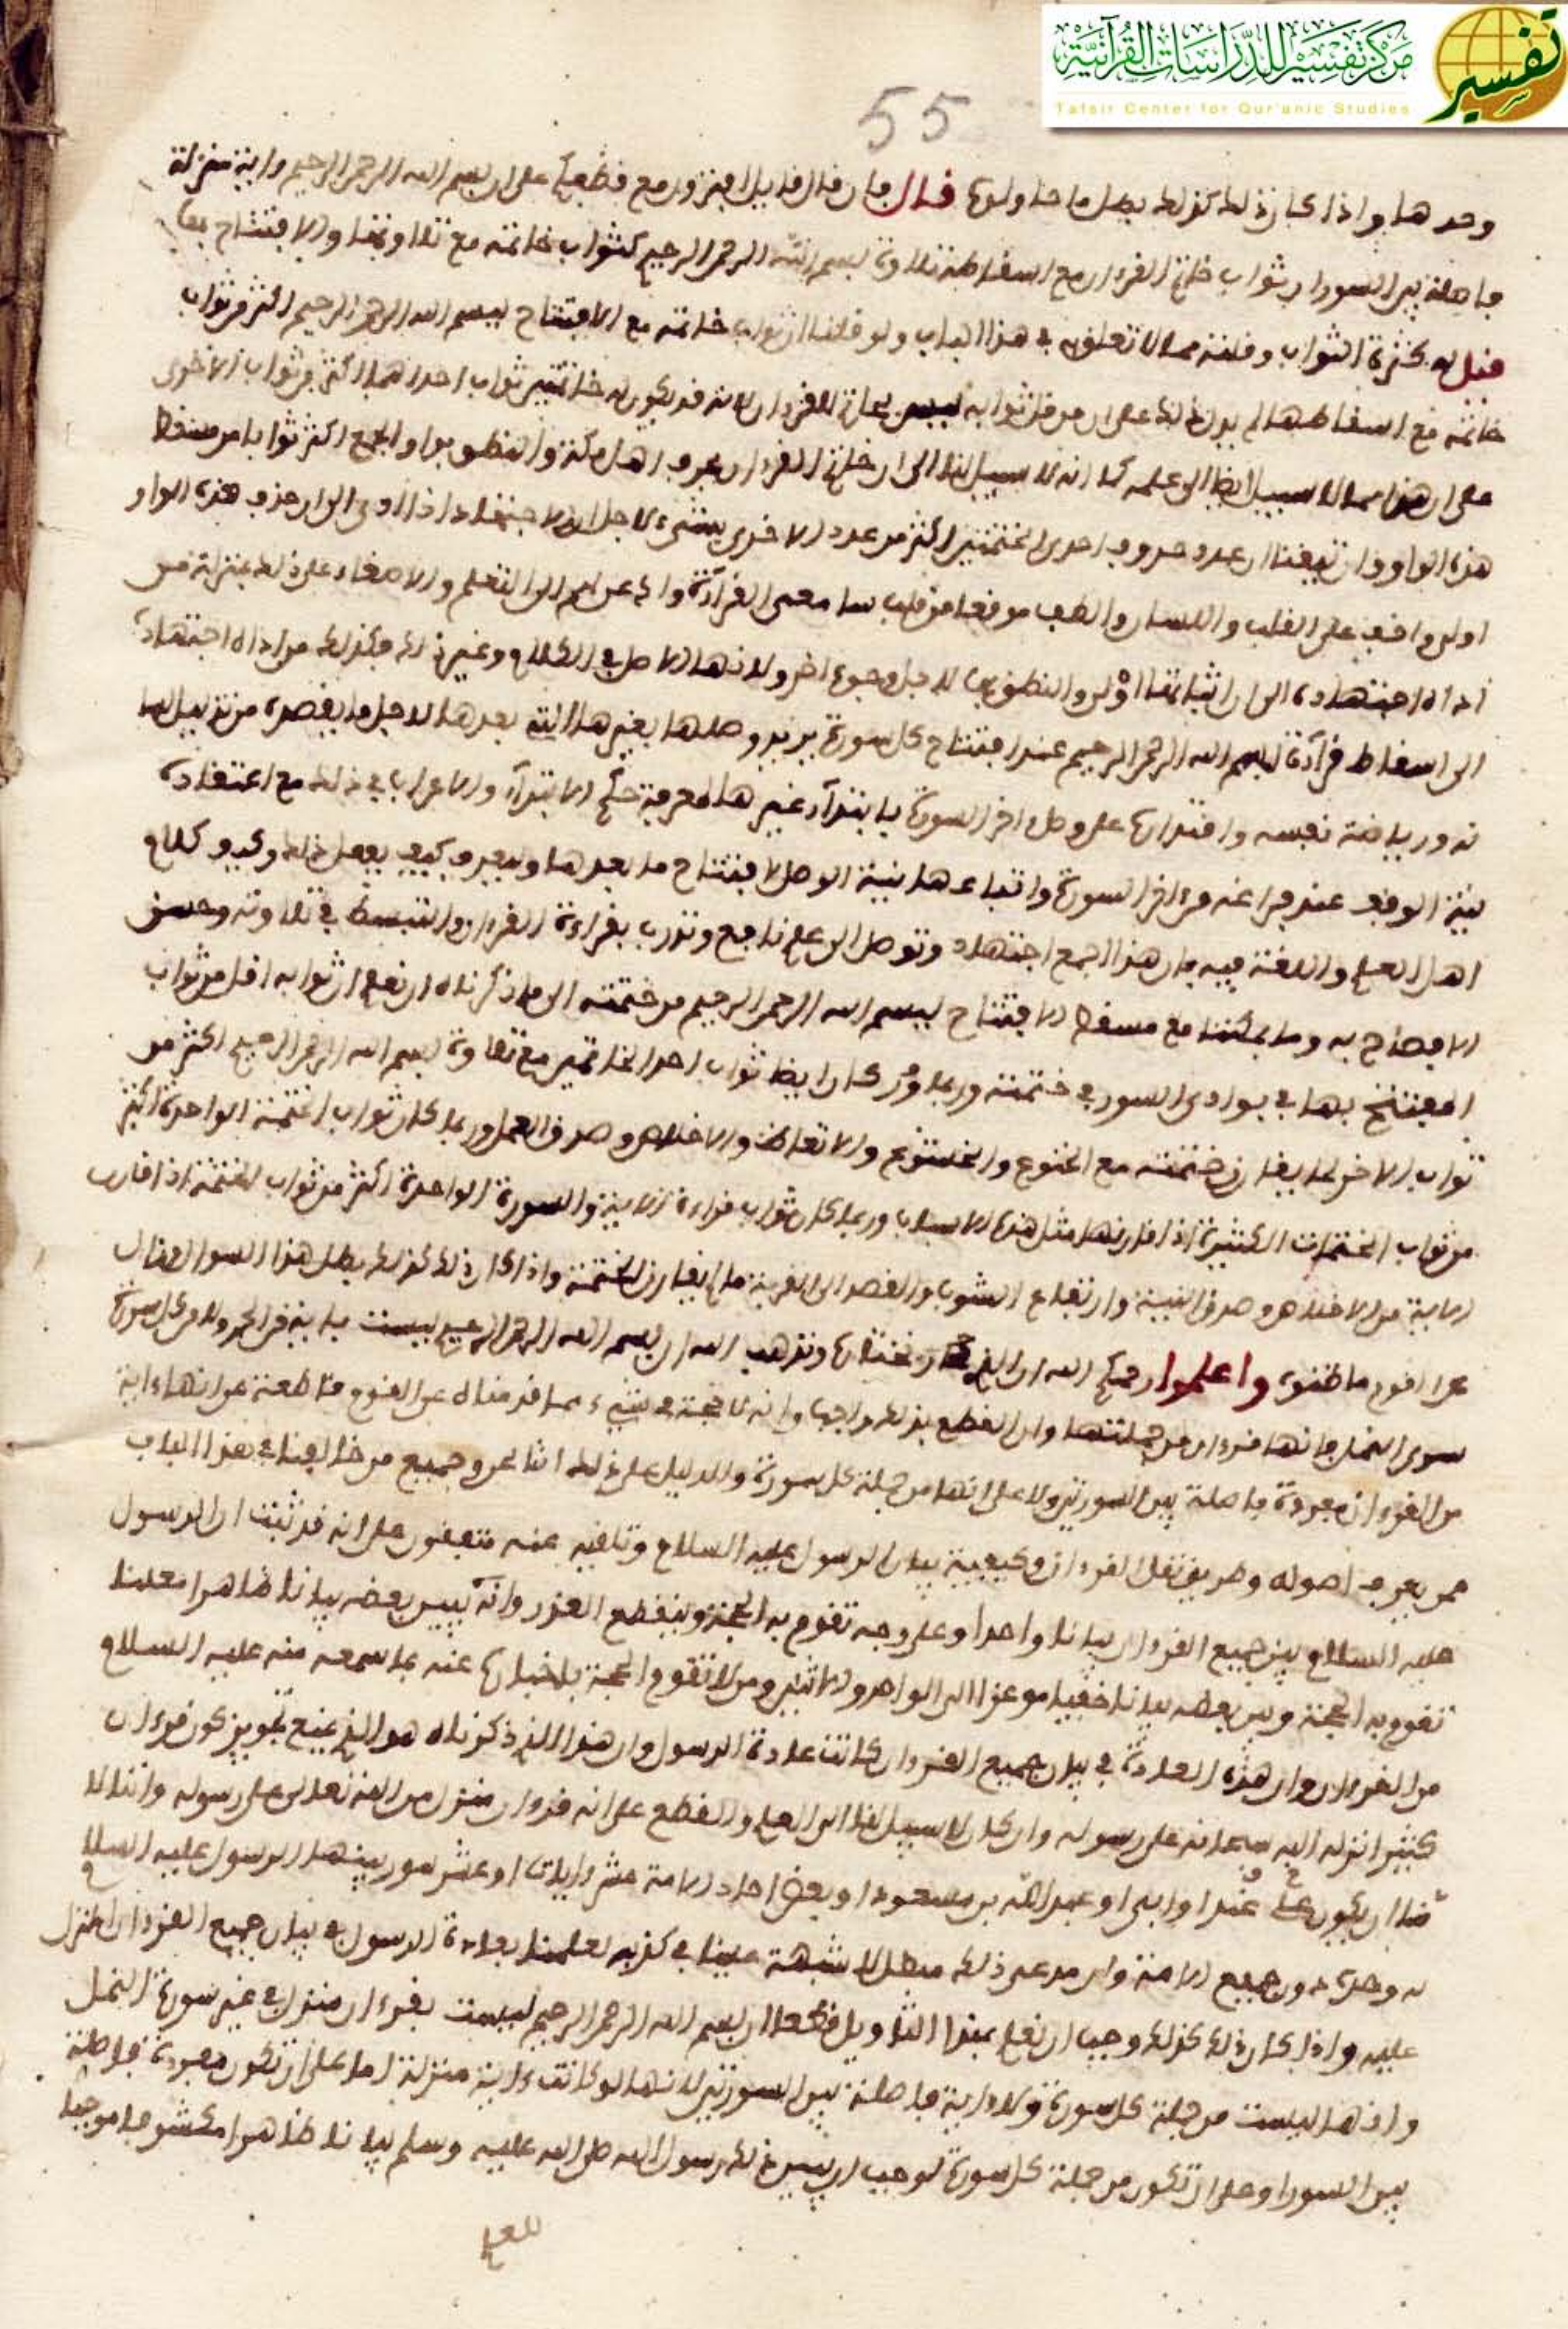 مركز تفسير للدراسات القرآنية
Tafsir Center for Qur'anic Studies
تفسير
55
وحدها واذا كان ذلك كذلك بطل ما حاولوه فـال فان قال قايل افترون مع قطعكم على ان بسم الله الرحمن الرحيم واية منزلة
فاصلة بين السور ان ثواب خاتم القرءان مع اسقاطه تلاوة بسم الله الرحمن الرحيم كثواب خاتمه مع تلاوتها والافتتاح بها
قيل له كثرة الثواب وقلته مما لا تعلق له في هذا الباب ولو قلنا ان ثواب خاتمه مع الافتتاح ببسم الله الرحمن الرحيم اكثر من ثواب
خاتمه مع اسقاطها لم يدل ذلك على ان من قل ثوابه ليس بخاتم للقرءان لانه قد يكون له خاتمتين ثواب احداهما اكثر من ثواب الاخرى
على ان هذا مما لا سبيل ايضا الى علمه كما انه لا سبيل لنا الى ان خاتم القرءان بحرف اهل مكة والنطق بواو الجمع اكثر ثوابا من مسقط
هذه الواو وان تيقنا ان عدد حروف احدى الختمتين اكثر من عدد الاخرى بشيء لاجل ان الاجتهاد اذا ادى الى ان حذف هذه الواو
اولى واخف على القلب واللسان والطف موقعا من قلب سامعي القراءة وادعى لهم الى التعلم والاصغاء على ذلك بمنزلة من
اداه اجتهاده الى ان اثباتها اولى والنطق بها لاجل وجوه اخر ولانها الاصل في الكلام وغير ذلك فكذلك من اداه اجتهاده
الى اسقاط قراءة بسم الله الرحمن الرحيم عند افتتاح كل سورة يريد وصلها بغيرها التي بعدها لاجل ما يقصده من ترتيل لها
تدور رياضة نفسه واقتداره على وصل اخر السورة بابتداء غيرها لمعرفة حكم الابتداء والاعراب في ذلك مع اعتقاده
نية الوقف عند فراغه من اخر السورة واتباعها بنية الوصل لافتتاح ما بعدها وليعرف كيف يفعل ذلك وكيف كلام
اهل العلم واللغة فيه فان هذا الجمع اجتهاد وتوصل الى علم نافع وتدرب بقراءة القرءان والتبسط في تلاوته وحسن
الافصاح به وما يمكننا مع مسقط الافتتاح ببسم الله الرحمن الرحيم من ختمته الى ما ذكرناه ان نعلم ان ثوابه اقل من ثواب
المفتتح بها في بوادي السور في ختمته وربما كان ايضا ثواب احد الخاتمين مع تلاوة بسم الله الرحمن الرحيم اكثر من
ثواب الاخر لما يقارن ختمته مع الخنوع والخشوع والاتعاظ والاخلاص وصدق العمل وربما كان ثواب الختمة الواحدة اكثر
من ثواب الختمات الكثيرة اذا قارنها مثل هذه الاسباب وربما كان ثواب قراءة الاية والسورة الواحدة اكثر من ثواب الختمة اذا قارب
الاية من الاخلاص وصدق النية وارتفاع الشوب والقصد الى القربة ما لم يقارن الختمة واذا كان ذلك كذلك بطل هذا السوال وزال
عما اقوم ما ظنوه واعلموا رحمكم الله ان الذي نختاره ونذهب اليه ان بسم الله الرحمن الرحيم ليست باية من الحمد ولا من كل سورة
سوى النمل فانها قرءان من جملتها وان القطع بذلك واجب وانه لا حجة في شيء مما قدمناه عن القوم قاطعة على انها اية
من القرءان مفردة فاصلة بين السورتين ولا على انها من جملة كل سورة والدليل على ذلك اننا نحن وجميع من خالفنا في هذا الباب
ممن يعرف اصوله وطريق نقل القرءان وكيفية بيان الرسول عليه السلام وتلقيه عنه متفقون على انه قد ثبت ان الرسول
عليه السلام بين جميع القرءان بيانا واحدا وعلى وجه تقوم به الحجة وينقطع العذر وانه لم يبين بعضه بيانا ظاهرا معلنا
تقوم به الحجة وبين بعضه بيانا خفيا موعزا الى الواحد والاثنين ومن لا تقوم الحجة باخباره عنه بما سمعه منه عليه السلام
من القرءان وان هذه العادة في بيان جميع القرءان كانت عادة الرسول وان هذا الذي ذكرناه هو الذي يمنع تجويز كون قرءان
كثير انزله اليه سبحانه على رسوله وان كان لا سبيل لنا الى العلم والقطع على انه قرءان منزل من الله تعالى على رسوله واننا لا
نامن ان يكون عند ابي او عبد الله بن مسعود او بعض احاد الامة عشر ايات او عشر سور بينها الرسول عليه السلام
له وحده دون جميع الامة وان مدعي ذلك مبطل لا شبهة علينا في كذبه لعلمنا بعادة الرسول في بيان جميع القرءان المنزل
عليه واذا كان ذلك كذلك وجب ان نعلم بهذا التاويل قطعا ان بسم الله الرحمن الرحيم ليست بقرءان منزل في غير سورة النمل
وانها ليست من جملة كل سورة ولا اية فاصلة بين السورتين لانها لو كانت اية منزلة اما على ان تكون مفردة فاصلة
بين السور او على ان تكون من جملة كل سورة لوجب ان يبين ذلك رسول الله صلى الله عليه وسلم بيانا ظاهرا مكشوفا موجبا
للعلم